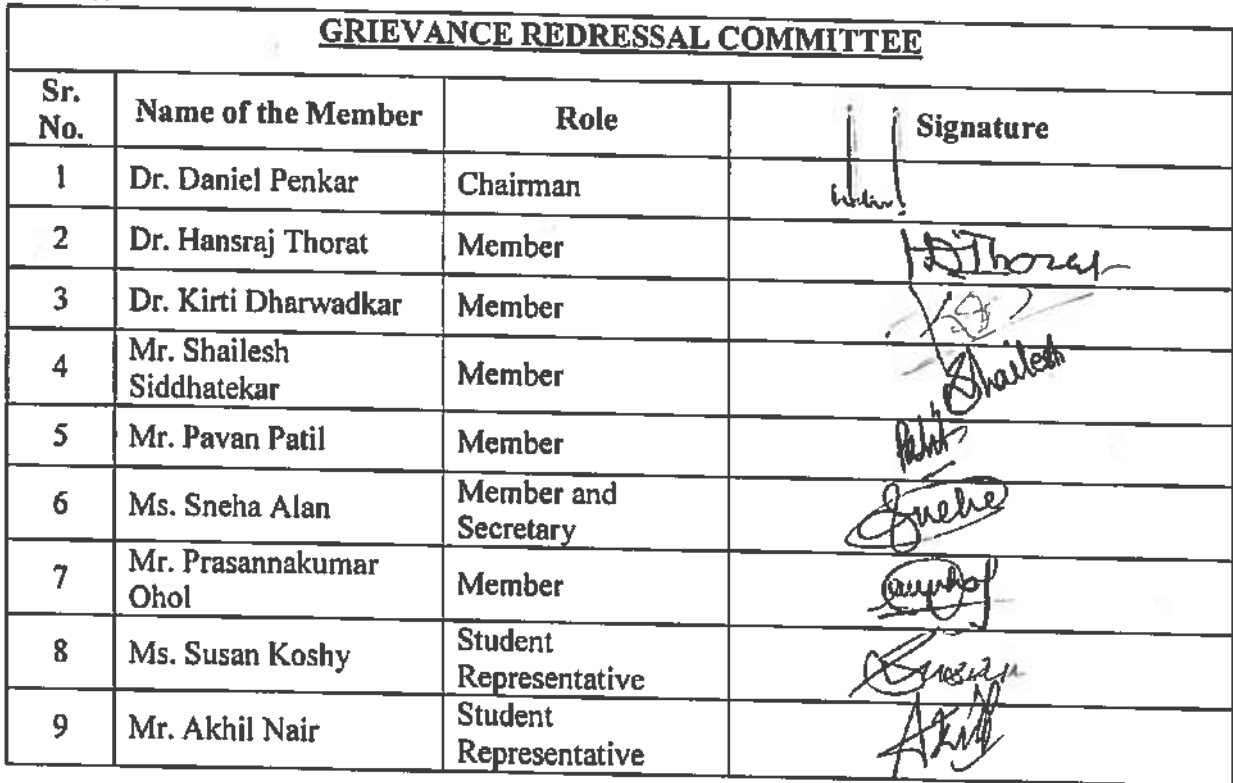 GRIEVANCE REDRESSAL COMMITTEE
Sr. No. Name of the Member Role Signature
1 Dr. Daniel Penkar Chairman
2 Dr. Hansraj Thorat Member HDThorat
3 Dr. Kirti Dharwadkar Member
4 Mr. Shailesh Siddhatekar Member Shailesh
5 Mr. Pavan Patil Member
6 Ms. Sneha Alan Member and Secretary Sneha
7 Mr. Prasannakumar Ohol Member
8 Ms. Susan Koshy Student Representative Susan
9 Mr. Akhil Nair Student Representative Akhil